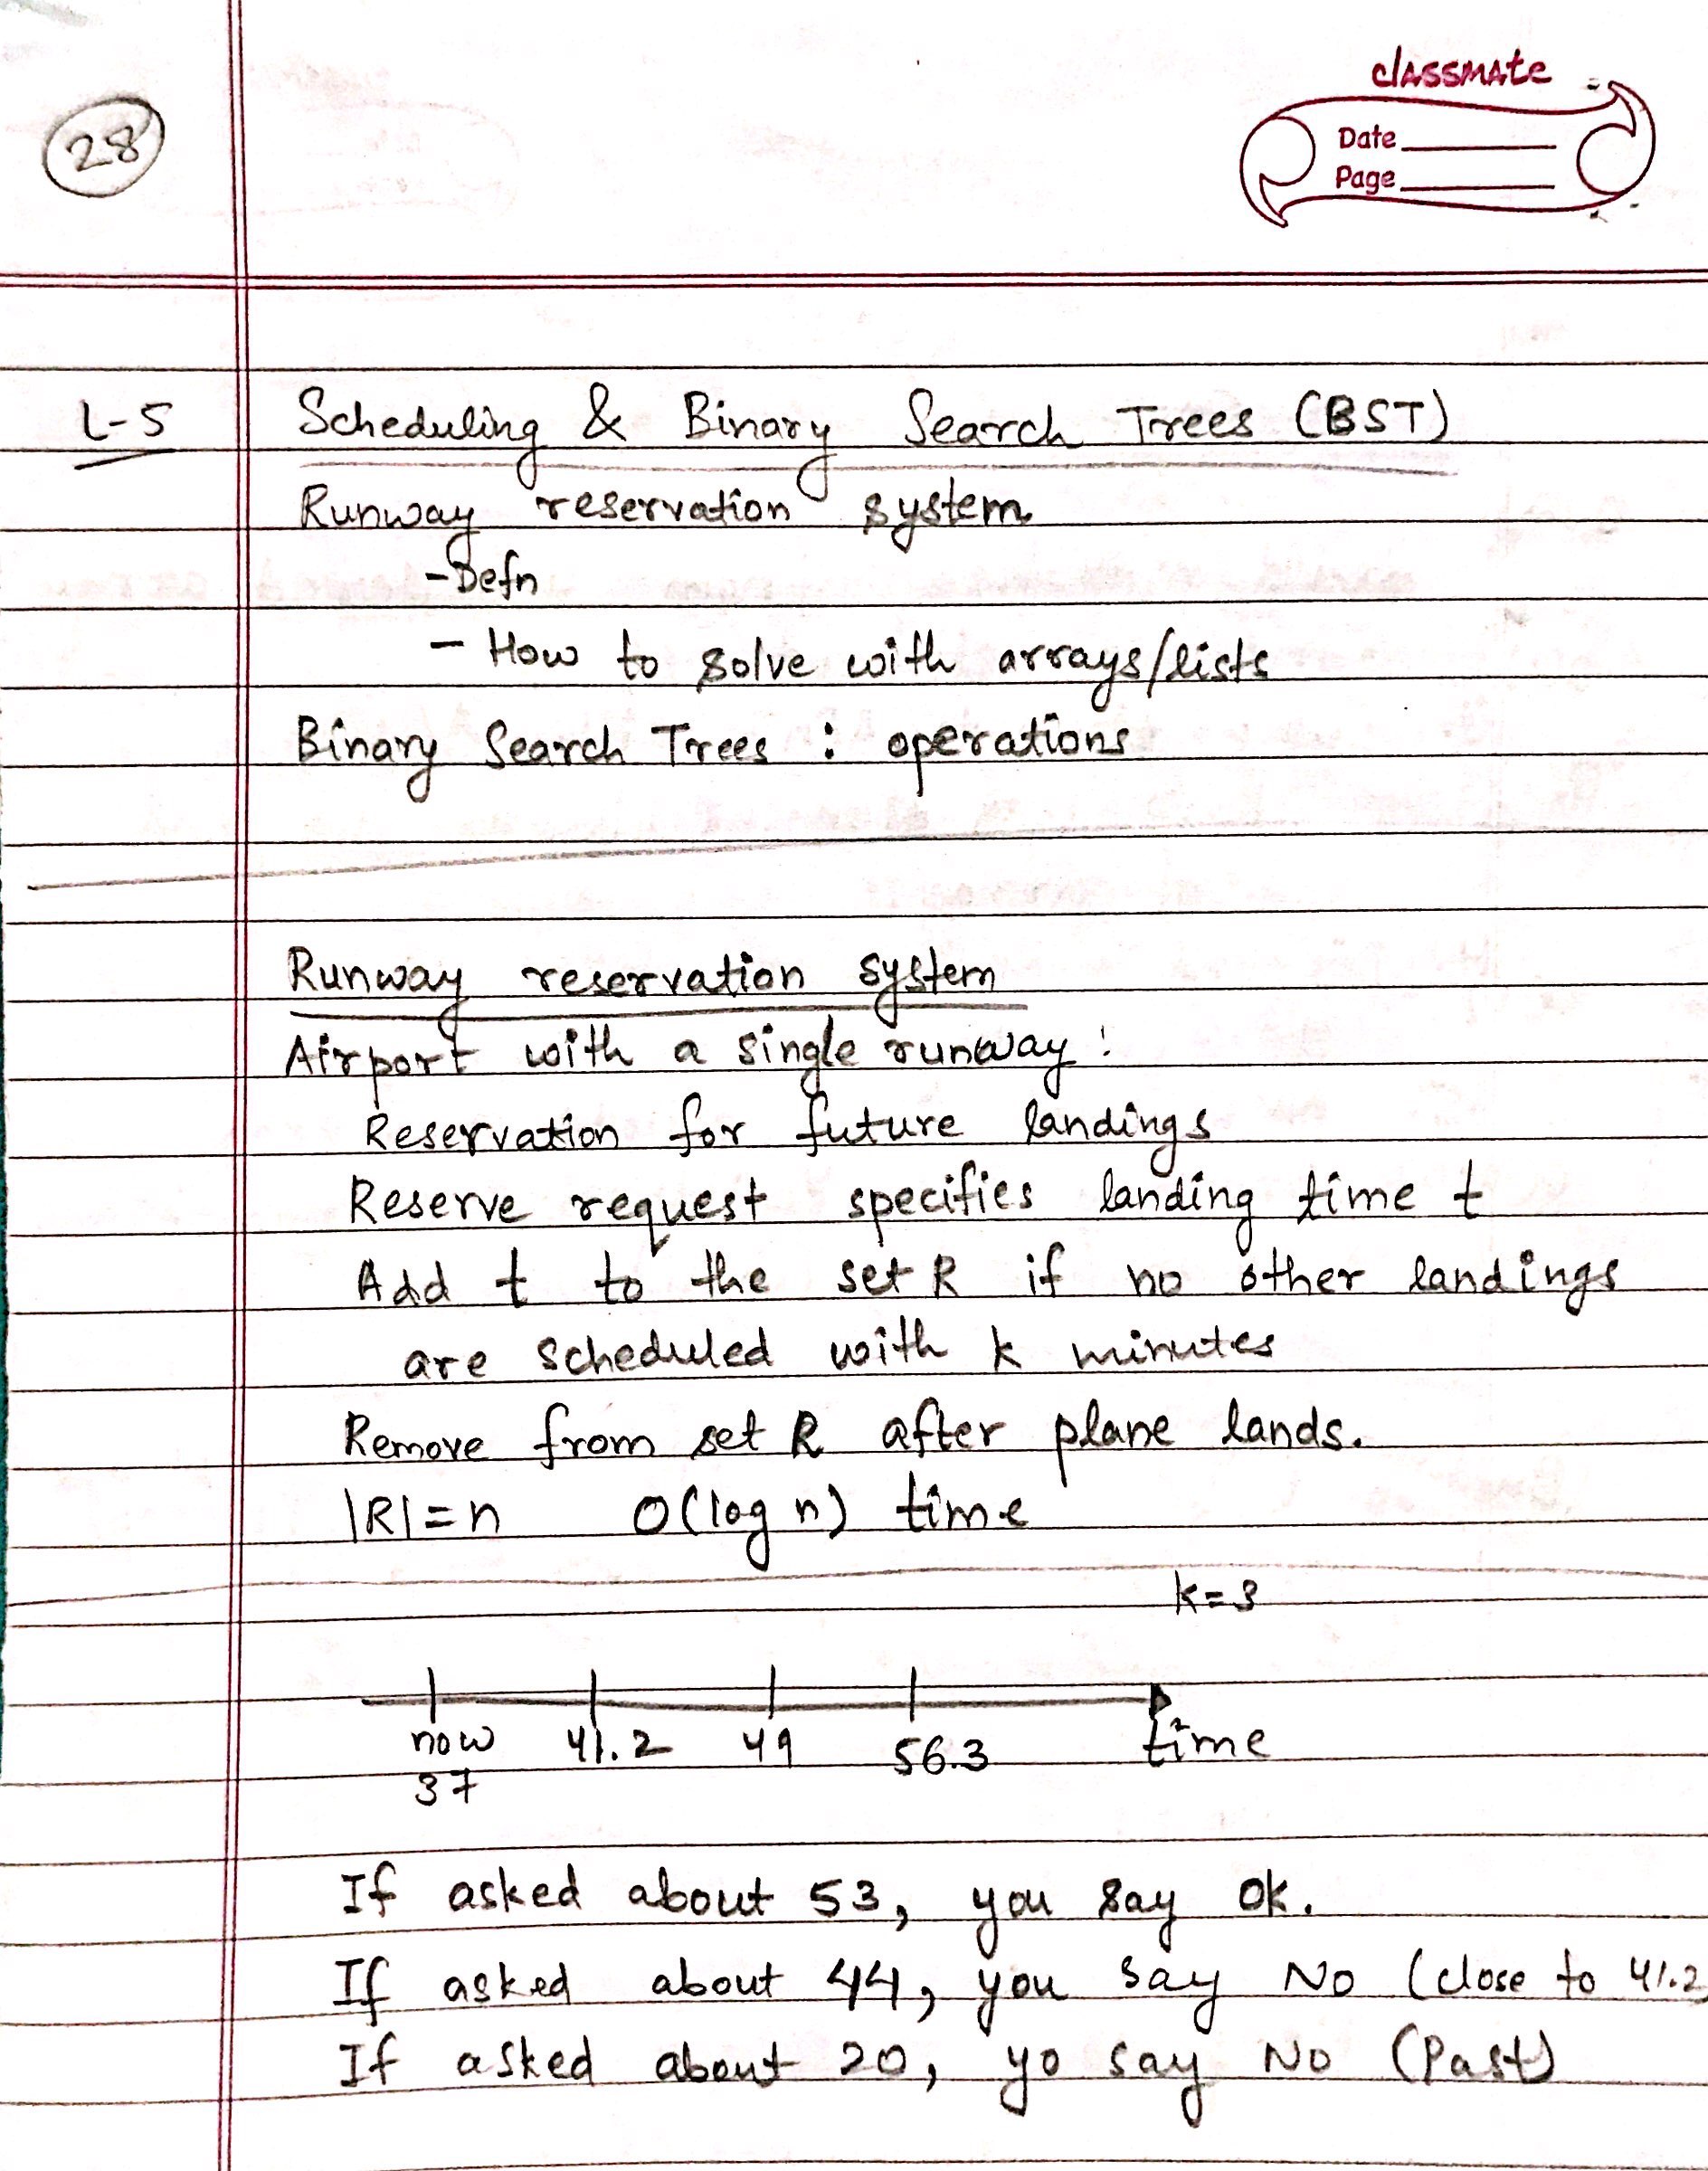 classmate
28
Date
Page
L-5 Scheduling & Binary Search Trees (BST)
Runway reservation system
-Defn
- How to solve with arrays/lists
Binary Search Trees : operations
Runway reservation system
Airport with a single runway :
Reservation for future landings
Reserve request specifies landing time t
Add t to the set R if no other landings
are scheduled with k minutes
Remove from set R after plane lands.
|R|=n O(log n) time
k=3
now 41.2 49 56.3 time
37
If asked about 53, you say OK.
If asked about 44, you say NO (close to 41.2
If asked about 20, yo say NO (Past)